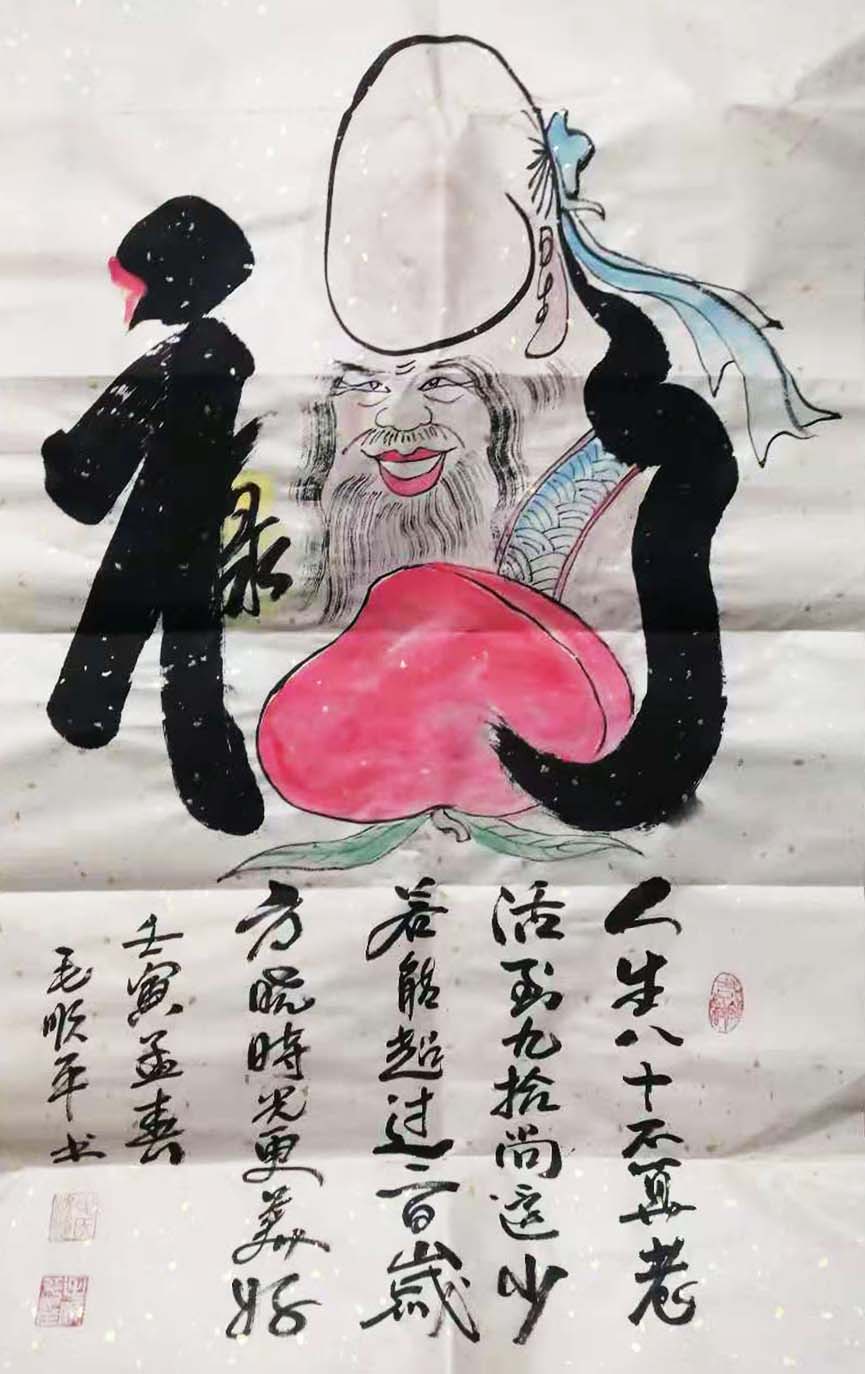 录
人生八十不算老
活到九拾尚還少
若能超过一百歲
方晓時光更美好
壬寅孟春
毛顺平书